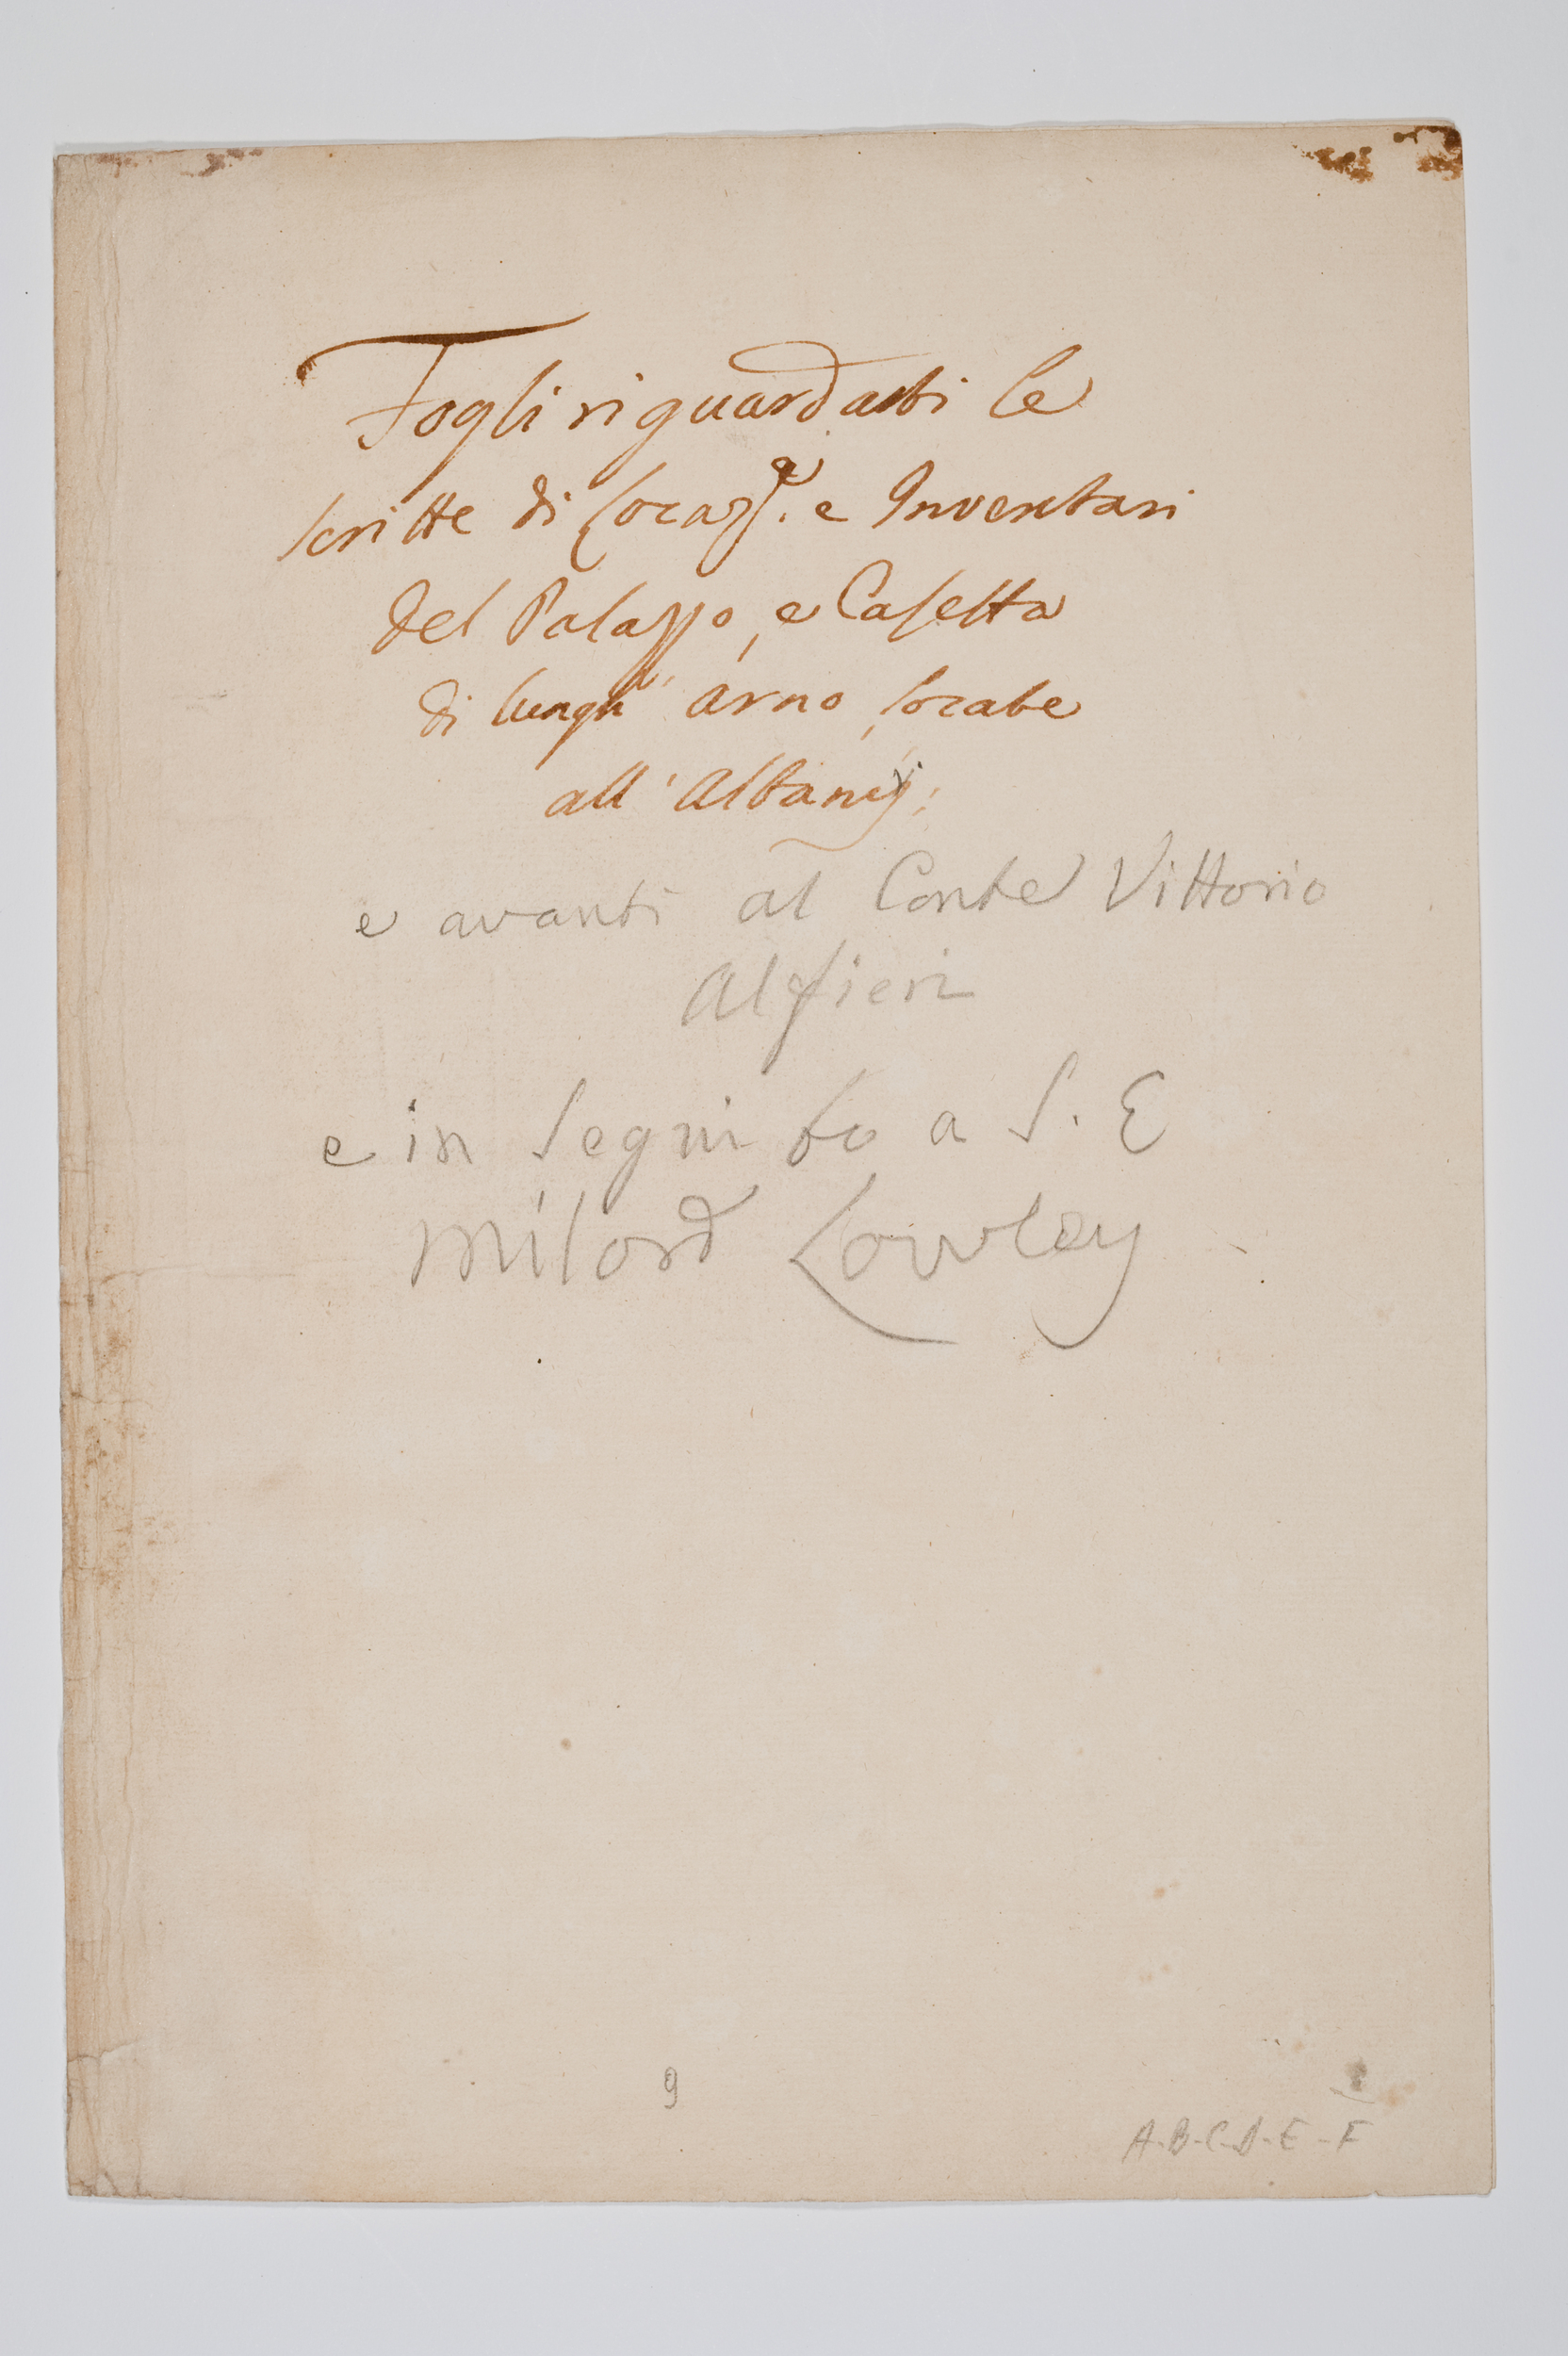 Fogli riguardanti le
scritte di Locaz.e e Inventari
del Palazzo, e Casetta
di lungh' arno, locate
all' Albany;
e avanti al Conte Vittorio
Alfieri
e in seguito a S. E
Milord Cowley
9
A-B-C-D-E-F